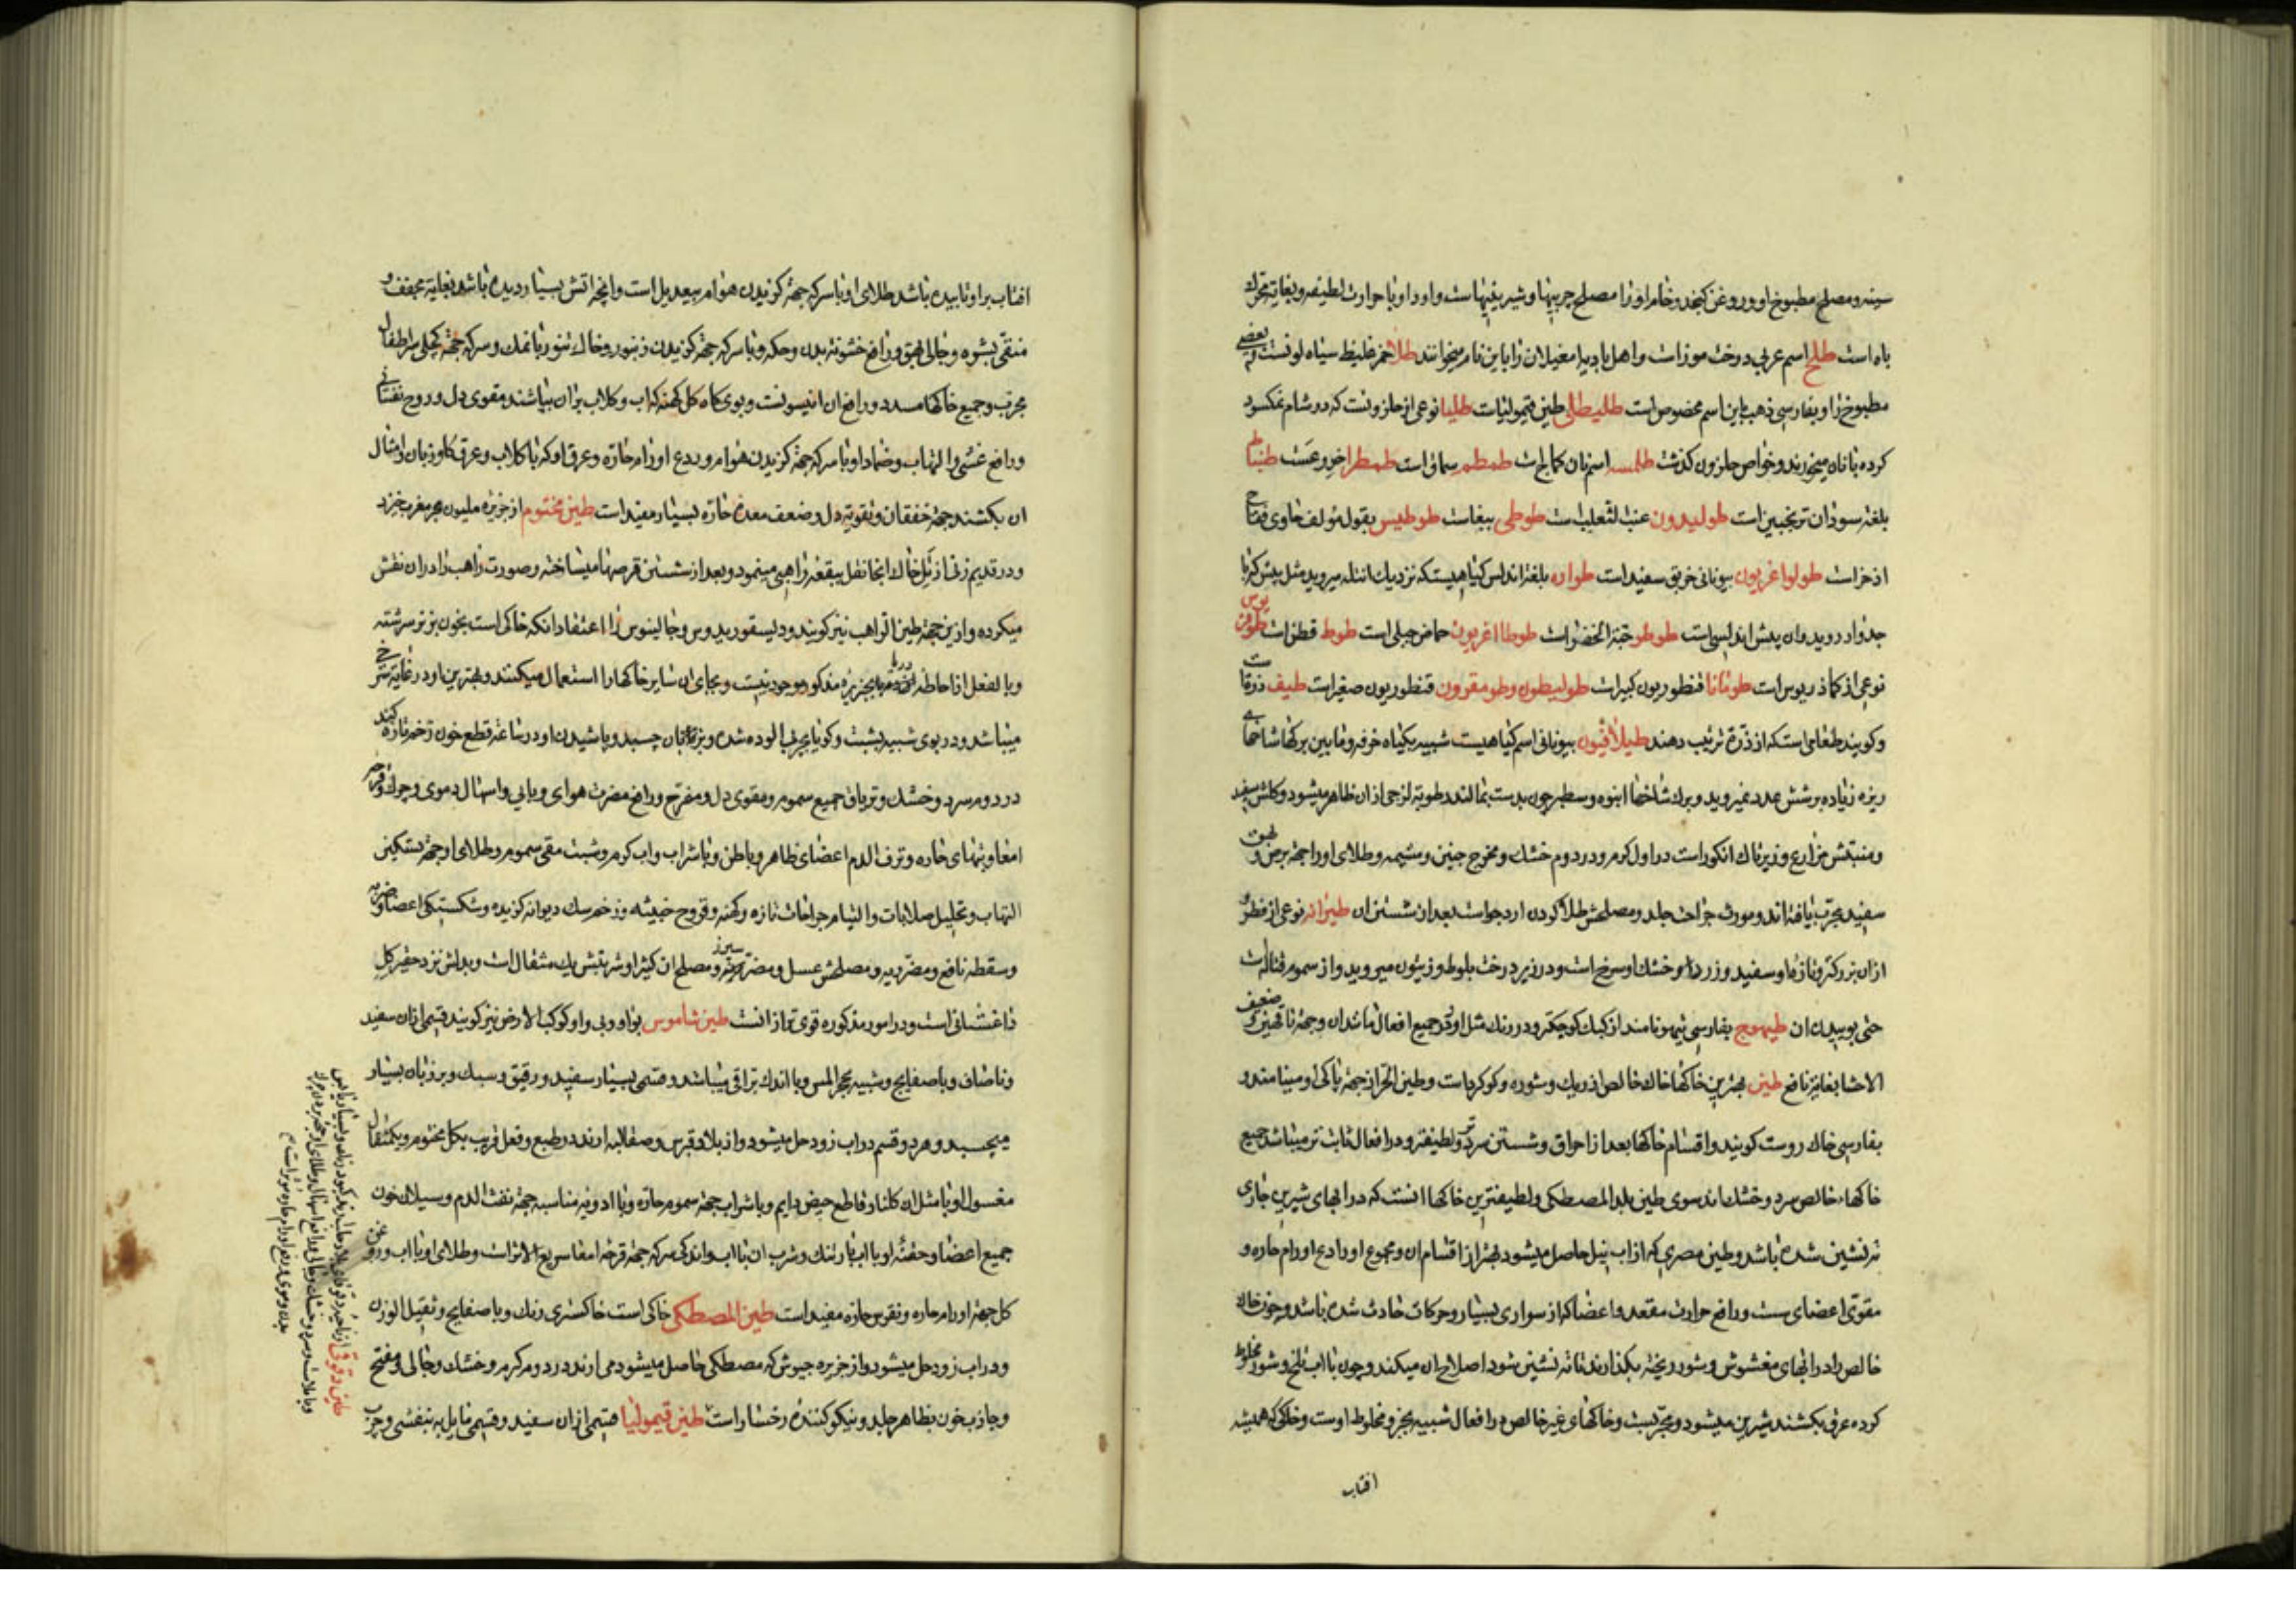 سینه و مصلح مطبوخ او روغن کنجد و خام او را مصلح چربیها و شیرینیهاست و اورا او با حرارت لطیفه و بغایة محرک
باه است طلح اسم عربی درخت موز است و اهل بادیه مغیلان را باین نام میخوانند طلا خمر غلیظ سیاه لونست و بعضی
مطبوخ را و بفارسی ذهب باین اسم مخصوص است طلیطلی طین قیمولیات طلیا نوعی از حلزونست که در شام نمکسود
کرده با نان میخورند و خواص حلزون کذشت طلمسه اسم نان کماج است طمطم سماق است طمطرا خروعست طنباط
بلغة سودان ترنجبین است طولیدون عنب الثعلبست طوطی ببغاست طوطیس بقول مؤلف حاوی فقاح
اذخر است طولوا غریون بیونانی خربق سفید است طواره بلغة اندلس کیاهیست که نزدیک اندلس میروید مثل بیش که با
جدوار روید و ان بیش اندلسی است طوطو حبة الخضرا است طوطا اغریون حماض جبلی است طوط قطن است طوقریوس
نوعی از کماذریوس است طونانا قنطوریون کبیر است طولیطون و طومقرون قنطوریون صغیر است طیف ذرة است
و کویند طعامی است که از ذرة ترتیب دهند طیلاقیون بیونانی اسم کیاهیست شبیه بکیاه خرفه و مابین برکها شاخهای
ریزه زیاده بر شش عدد نمیروید و برک شاخها انبوه و سطبر چون بدست بمالند رطوبة لزجی از ان ظاهر میشود و کلش سفید
و منبتش مزارع و زیر تاک انکور است در اول کرم و در دوم خشک و مخرج جنین و مشیمه و طلای او را جهة برص و بهق
سفید مجرب یافته اند و مورث جراحت جلد و مصلحش طلا کردن ارد جواست بعد از شستن ان طیرانه نوعی از فطر و
از ان بزرکتر و تازه او سفید و زرد و خشک او سرخ است و در زیر درخت بلوط و زیتون میروید و از سموم قتاله است
حتی بوییدن ان طیهوج بفارسی تیهو نامند از کبک کوچکتر و در رنک مثل او و در جمیع افعال مانند ان و جهة ناقهین و ضعیف
الاحشا بغایة نافع طین بهترین خاکها خاک خالص از ریک و شوره و کوکرد است و طین الحر از جهة پاکی او مینامند و
بفارسی خاک روست کویند و اقسام خاکها بعد از احراق و شستن سردتر و لطیفتر و در افعال ثابت تر میباشد جمیع
خاکهاء خالص سرد و خشک اند سوی طین بلد المصطکی و لطیفترین خاکها انست که در ابهای شیرین جاری
ته نشین شده باشد و طین مصری که از اب نیل حاصل میشود بهتر از اقسام ان و مجموع او رادع اورام حاره و
مقوی اعضای سست و رافع حرارت مقعد و اعضا که از سواری بسیار و حرکات حادث شده باشد و چون خاک
خالص را در ابهای مغشوش و شور ریخته بکذارند تا ته نشین شود اصلاح ان میکند و چون با اب تلخ و شور مخلوط
کرده عرق بکشند شیرین میشود و مجربست و خاکهای غیر خالص در افعال شبیه بجزو مخلوط اوست و خاکی که همیشه
افتاب
افتاب بر او تابیده باشد طلای او با سرکه جهة کزیدن هوام بیعدیل است و انچه اتش بسیار دیده باشد بغایة مجفف و
منقی بشره و جالی بهق و رافع خشونة بدن و حکه و با سرکه جهة کزیدن زنبور و خاک تنور با نمک و سرکه جهة کچلی سر اطفال
مجرب و جمیع خاکها مسدد و رافع ان انیسونست و بوی کاه کل کهنه که اب و کلاب بر ان بپاشند مقوی دل و روح نفسانی
و رافع غشی و التهاب و ضماد او با سرکه جهة کزیدن هوام و ردع اورام حاره و عرق او که با کلاب و عرق کاوزبان و امثال
ان بکشند جهة خفقان و تقویة دل و ضعف معده حاره بسیار مفید است طین مختوم از جزیره ملیون بحر مغرب خیزد
و در قدیم زنی از تل خاک انجا نقل ببقعه راهبی مینمود و بعد از شستن قرصها میساخته و صورت راهب را در ان نقش
میکرده و از ین جهة طین الراهب نیز کویند و دیسقوریدوس و جالینوس را اعتقاد انکه خاکی است بخون بز نر سرشته
و بالفعل از احاطه دریا بجزیره مذکور موجود نیست و بجای ان سایر خاکها را استعمال میکنند و بهترین او در غایة سرخی
میباشد و در بوی شبیه بشبت و کویا بچربی الوده شده و بر زبان چسبد و پاشیدن او در ساعة قطع خون زخم تازه کند
در دوم سرد و خشک و تریاق جمیع سموم و مقوی دل و مفرح و رافع مضرت هوای وبایی و اسهال دموی و چرک و قرحه
امعا و تبهای حاره و نزف الدم اعضای ظاهر و باطن و با شراب و اب کرم و شبت مقی سموم و طلای او جهة تسکین
التهاب و تحلیل صلابات و التیام جراحات تازه و کهنه و قروح خبیثه و زخم سک دیوانه کزیده و شکستکی اعضا و ضربه
و سقطه نافع و مضر ریه و مصلحش عسل و مضر سپرز و مصلح ان کتیرا و شربتش یک مثقال است و بدلش نزد حقیر کل
داغستانی است و در امور مذکوره قوی تر از انست طین شاموس بواو و بی واو کوکب الارض نیز کویند قسمی از ان سفید
و ناصاف و با صفایح و شبیه بحجر المس و با اندک براقی میباشد و قسمی بسیار سفید و رقیق و سبک و بر زبان بسیار
میچسبد و هر دو قسم در اب زود حل میشود و از بلاد قبرس و صقالیه ارند در طبع و فعل قریب بکل مختوم و یکمثقال
مغسول او با مثل ان کلنار قاطع حیض دایم و با شراب جهة سموم حاره و با ادویه مناسبه جهة نفث الدم و سیلان خون
جمیع اعضا و حقنه او با اب بارتنک و شرب ان با اب و اندکی سرکه جهة قرحه امعا سریع الاثر است و طلای او با اب و روغن
کل جهة اورام حاره و نقرس حاره مفید است طین المصطکی خاکی است خاکستری رنک و با صفایح و ثقیل الوزن
و در اب زود حل میشود و از جزیره جیوش که مصطکی حاصل میشود می ارند در دوم کرم و خشک و جالی و مفتح
و جاذب خون بظاهر جلد و نیکو کننده رخسار است طین قیمولیا قسمی از ان سفید و قسمی مایل به بنفشی و چرب
طین دقوقی از ناحیه دقوقای بلاد حلب خیزد کبود رنک و بسیار یابس
و با ملاست و سرد و خشک و جالی و رافع اسهال و طلای او جهة بردن چرک
بدن و موی و ردع اورام حاره مؤثر است